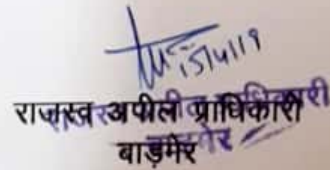 15/4/19
राजस्व अपील प्राधिकारी
बाड़मेर